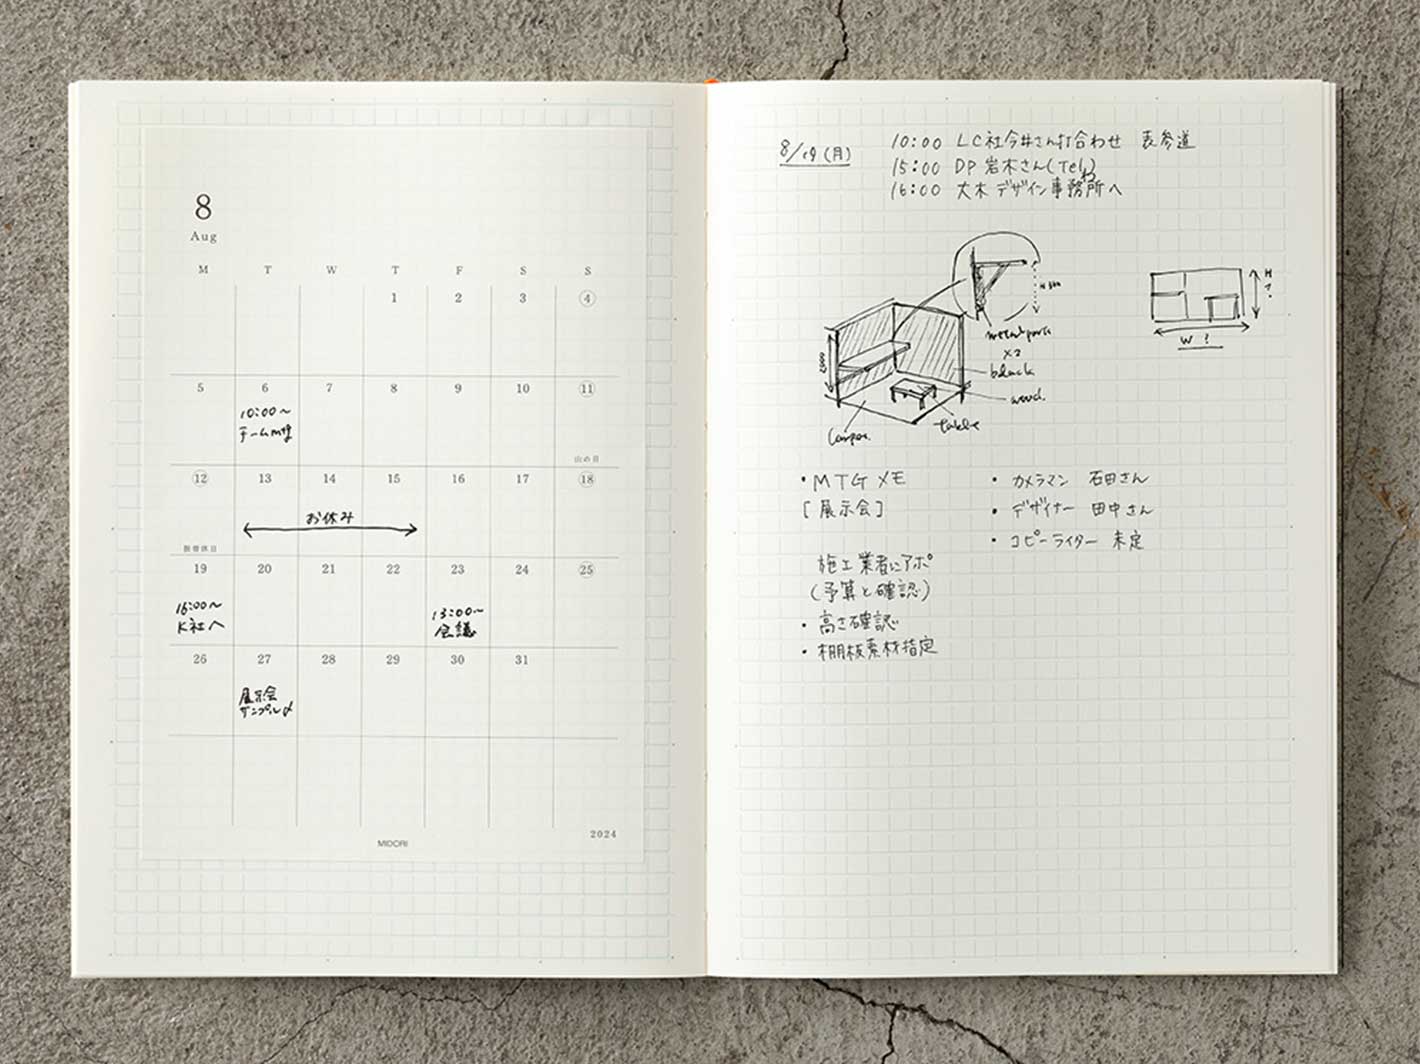 8
Aug
M T W T F S S
1 2 3 4
5 6 7 8 9 10 11
10:00〜
チームMtg
山の日
12 13 14 15 16 17 18
お休み
振替休日
19 20 21 22 23 24 25
16:00〜
K社へ
13:00〜
会議
26 27 28 29 30 31
展示会
サンプル〆
2024
MIDORI
8/19(月)
10:00 LC社今井さん打合わせ 表参道
15:00 DP 岩木さん(Tel)
16:00 大木デザイン事務所へ
H
?
W ?
metal
×2
black
wood.
table
・MTGメモ
[展示会]
・カメラマン 石田さん
・デザイナー 田中さん
・コピーライター 未定
施工業者にアポ
(予算と確認)
・高さ確認
・棚板素材指定